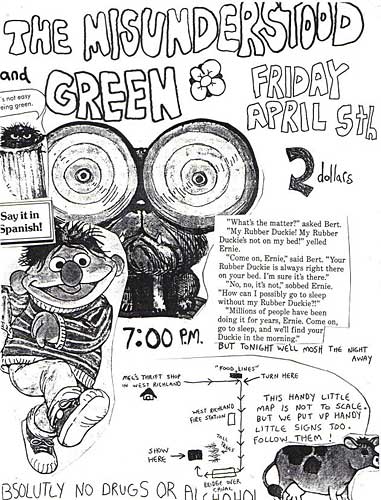 THE MISUNDERSTOOD
and
GREEN
FRIDAY
APRIL 5th
's not easy
eing green.
2 dollars
Say it in
Spanish!
"What's the matter?" asked Bert.
"My Rubber Duckie! My Rubber
Duckie's not on my bed!" yelled
Ernie.
"Come on, Ernie," said Bert. "Your
Rubber Duckie is always right there
on your bed. I'm sure it's there."
"No, no, it's not," sobbed Ernie.
"How can I possibly go to sleep
without my Rubber Duckie?!"
"Millions of people have been
doing it for years, Ernie. Come on,
go to sleep, and we'll find your
Duckie in the morning."
BUT TONIGHT WE'LL MOSH THE NIGHT
AWAY
7:00 P.M.
"FOOD LINES"
TURN HERE
MEL'S THRIFT SHOP
IN WEST RICHLAND
WEST RICHLAND
FIRE STATION
TALL TREES
SHOW
HERE
BRIDGE OVER
CANAL
THIS HANDY LITTLE
MAP IS NOT TO SCALE.
BUT WE PUT UP HANDY
LITTLE SIGNS TOO.
FOLLOW THEM!
BSOLUTLY NO DRUGS OR ALCOHOL